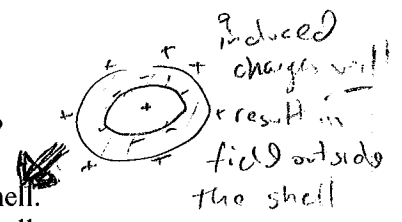 induced
charges will
result in
field outside
the shell
hell.